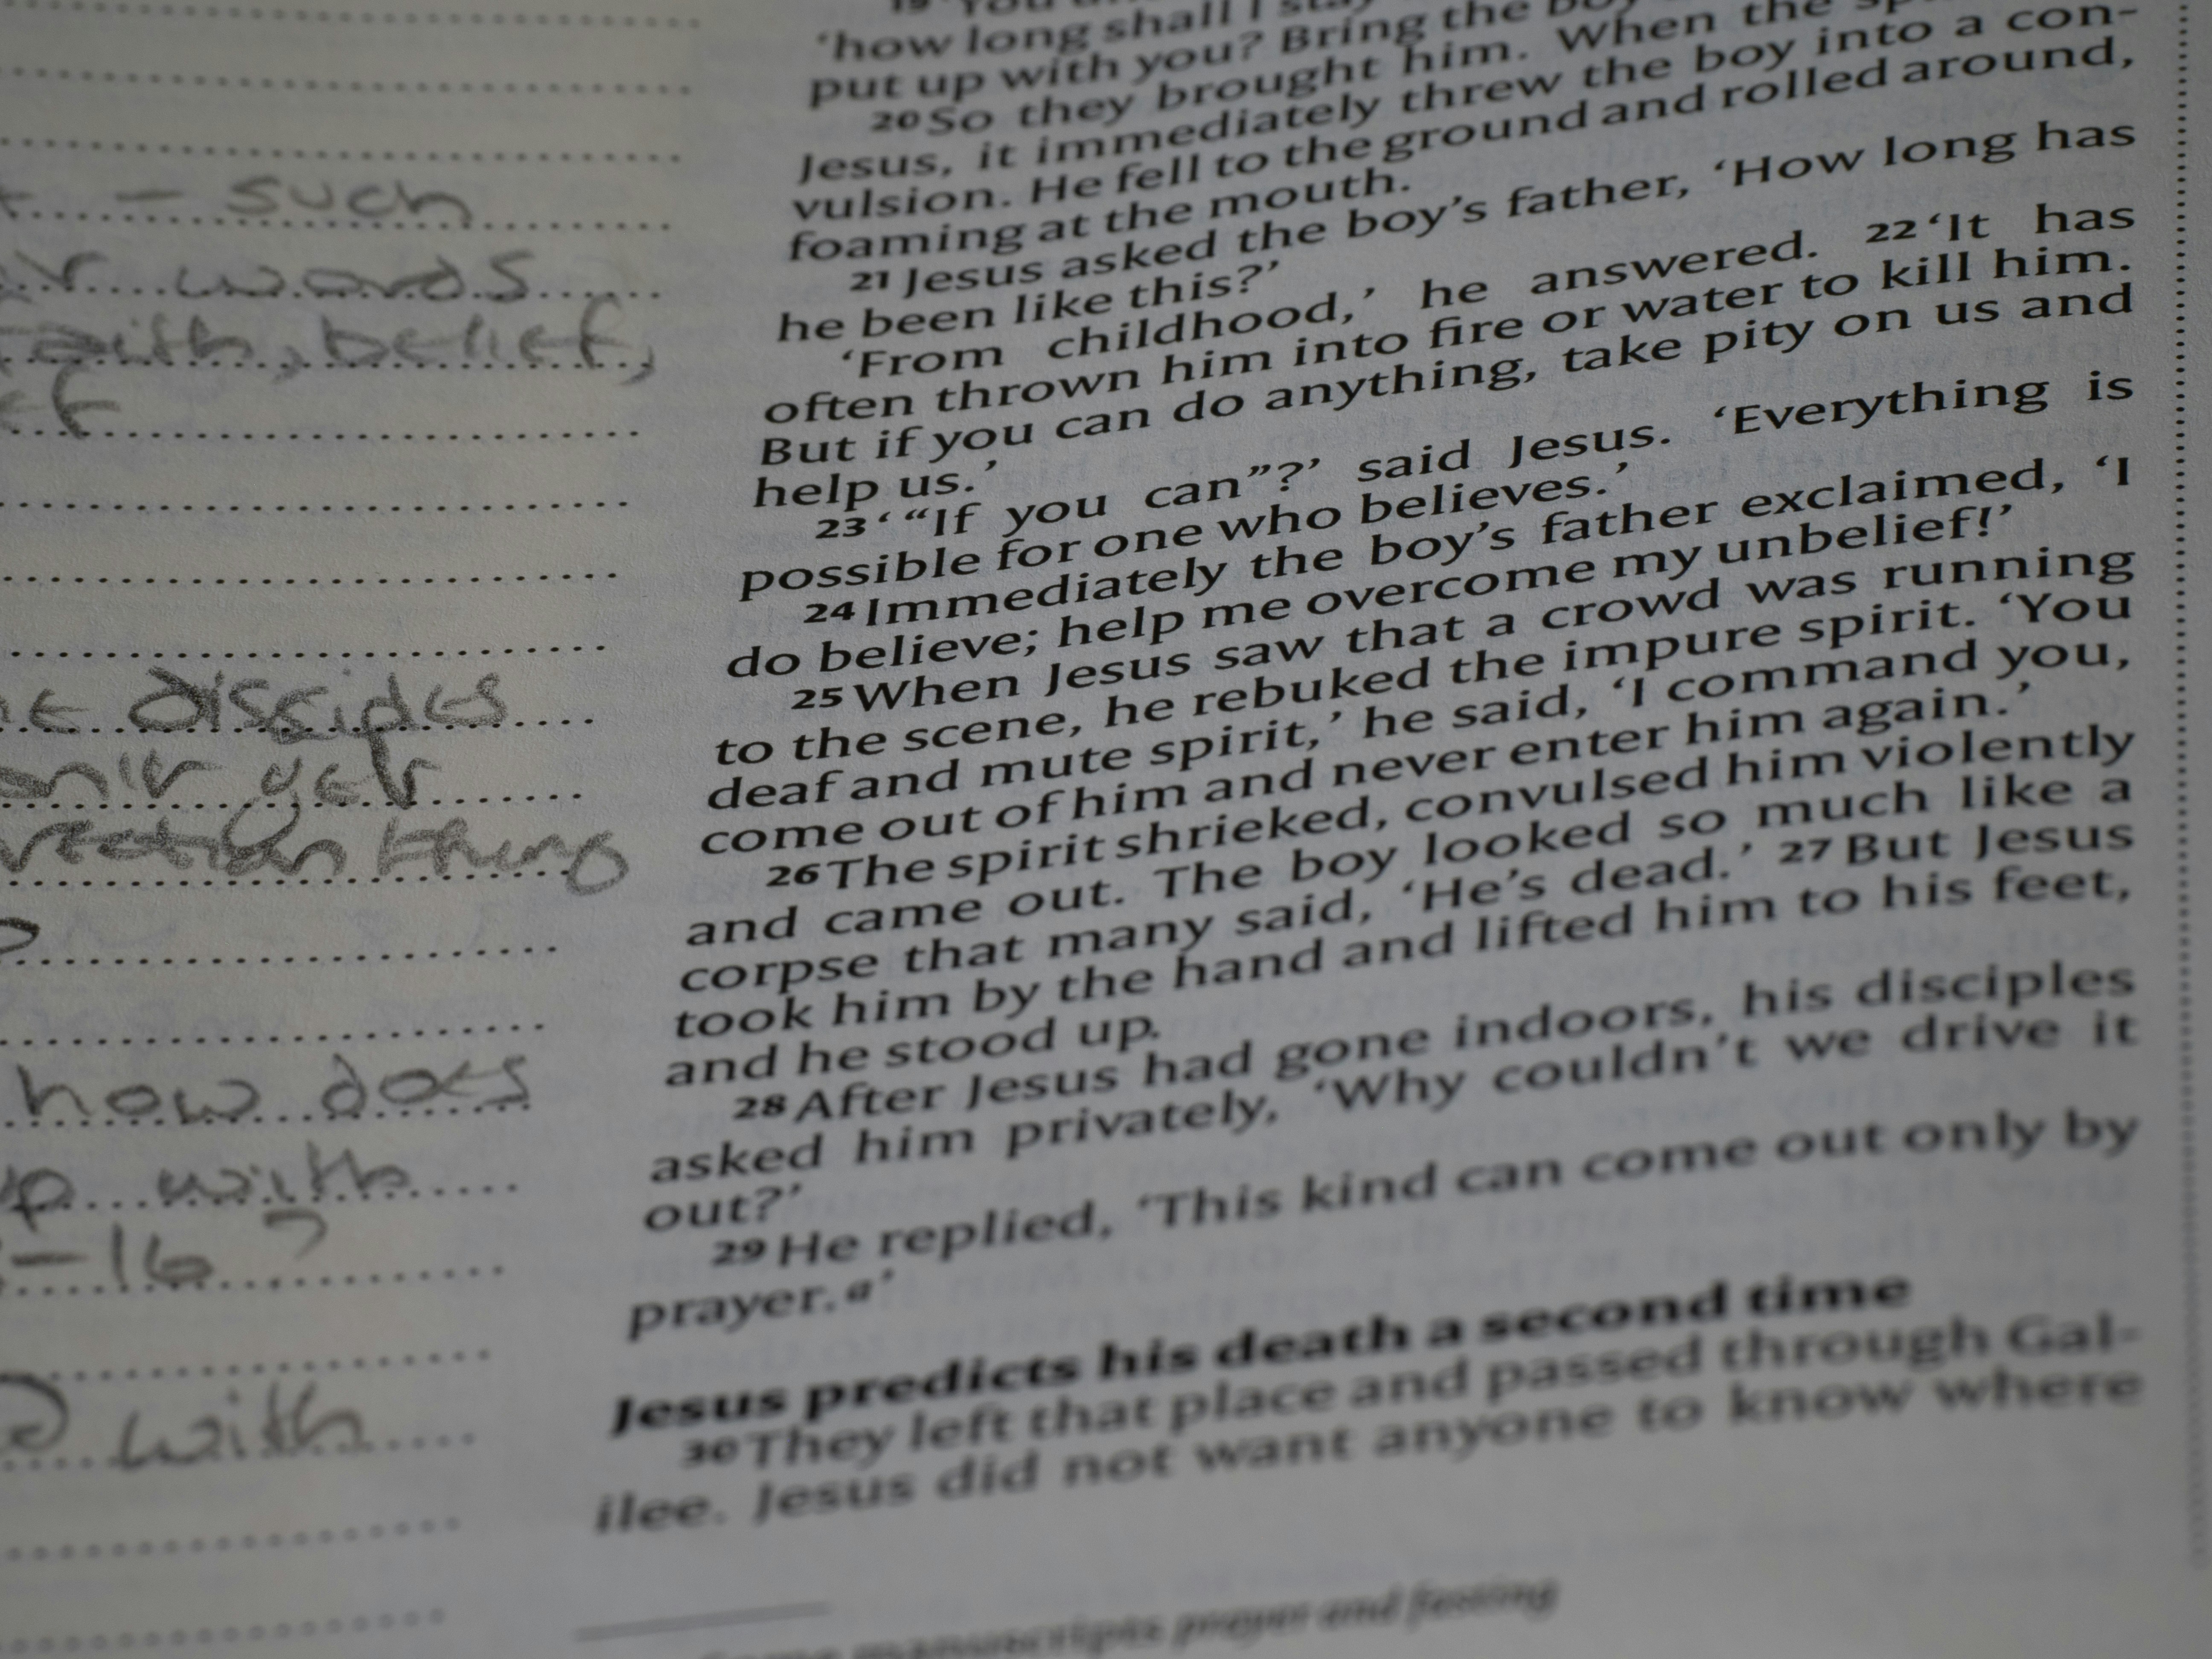 - such
words
faith, belief,
disciples
don't get
thing
how does
up with
-16?
with
19 'You
'how long shall I stay
put up with you? Bring the boy
20 So they brought him. When the
Jesus, it immediately threw the boy into a con-
vulsion. He fell to the ground and rolled around,
foaming at the mouth.
21 Jesus asked the boy's father, 'How long has
he been like this?'
'From childhood,' he answered. 22 'It has
often thrown him into fire or water to kill him.
But if you can do anything, take pity on us and
help us.'
23 ' "If you can"?' said Jesus. 'Everything is
possible for one who believes.'
24 Immediately the boy's father exclaimed, 'I
do believe; help me overcome my unbelief!'
25 When Jesus saw that a crowd was running
to the scene, he rebuked the impure spirit. 'You
deaf and mute spirit,' he said, 'I command you,
come out of him and never enter him again.'
26 The spirit shrieked, convulsed him violently
and came out. The boy looked so much like a
corpse that many said, 'He's dead.' 27 But Jesus
took him by the hand and lifted him to his feet,
and he stood up.
28 After Jesus had gone indoors, his disciples
asked him privately, 'Why couldn't we drive it
out?'
29 He replied, 'This kind can come out only by
prayer.a'
Jesus predicts his death a second time
30 They left that place and passed through Gal-
ilee. Jesus did not want anyone to know where
Some manuscripts prayer and fasting